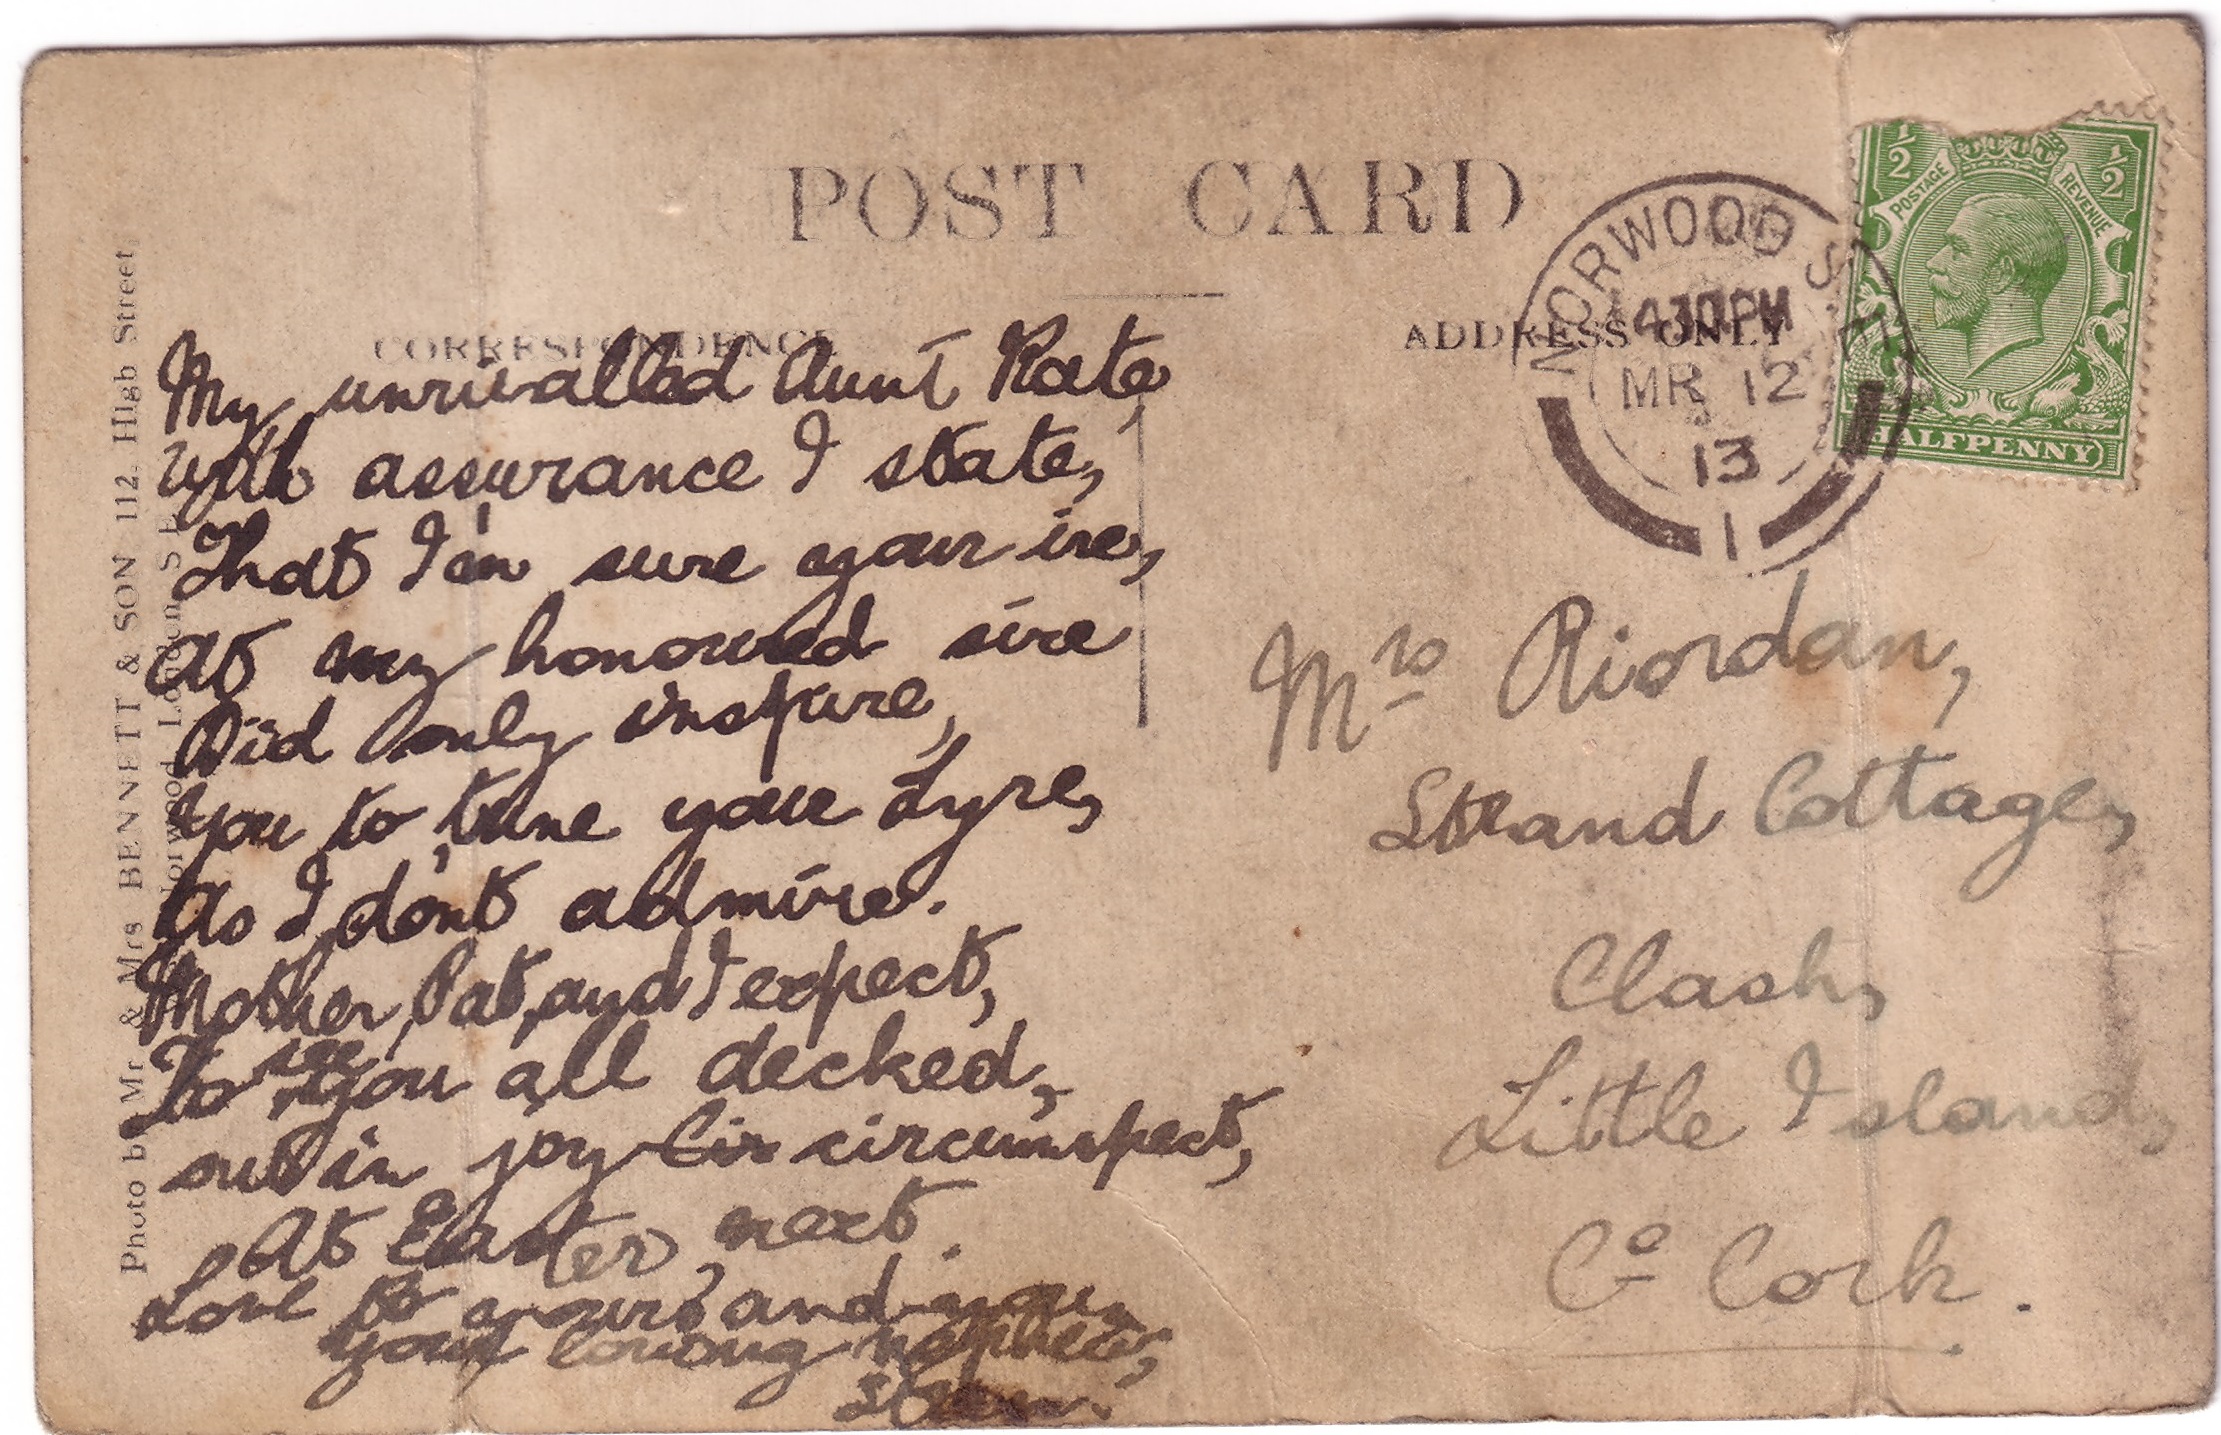 POST CARD
CORRESPONDENCE
ADDRESS ONLY
NORWOOD S.E.
4.30 PM
MR 12
13
1
½ ½
POSTAGE REVENUE
HALFPENNY
My unrivalled Aunt Kate,
with assurance I state,
That I'm sure your ire,
At my honoured sire
Did only inspire,
You to tune your Lyre,
As I don't admire.
Mother, Pat, and I expect,
To see you all decked,
out in joy Cir circumspect,
At Easter, next.
Love to yours and you,
your loving nephew,
Mrs Riordan,
Strand Cottage,
Clash,
Little Island,
Co Cork.
Photo by Mr & Mrs BENNETT & SON 112, High Street
Norwood London S E